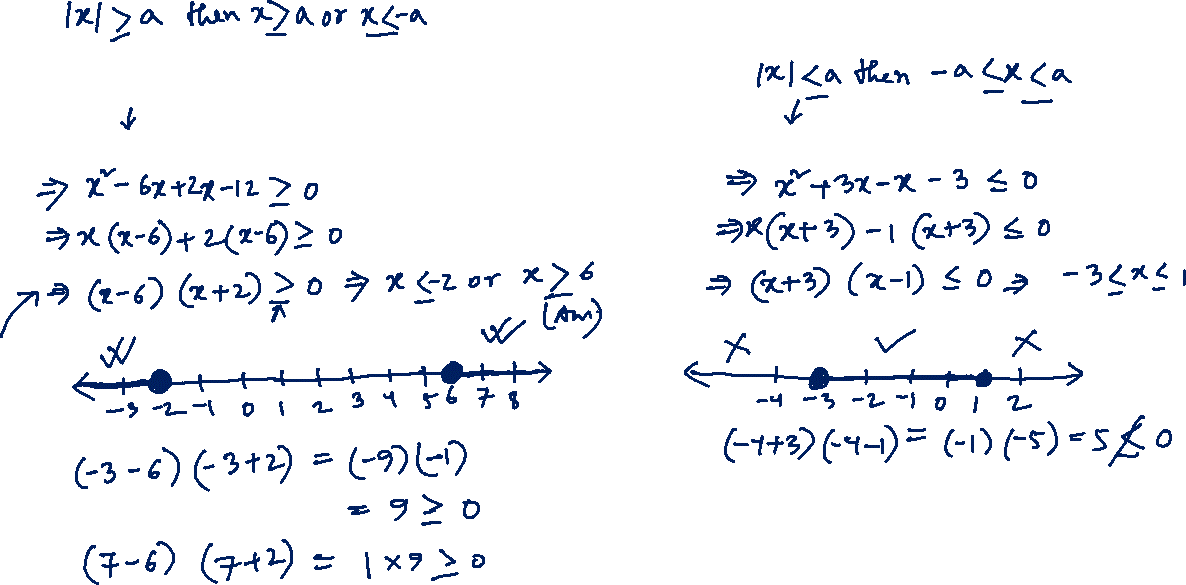 |x| ≥ a then x ≥ a or x ≤ -a
↓
⇒ x² - 6x + 2x - 12 ≥ 0
⇒ x (x-6) + 2(x-6) ≥ 0
⇒ (x-6) (x+2) ≥ 0 ⇒ x ≤ -2 or x ≥ 6
(Ans)
-3 -2 -1 0 1 2 3 4 5 6 7 8
(-3-6) (-3+2) = (-9)(-1)
= 9 ≥ 0
(7-6) (7+2) = 1 × 9 ≥ 0
|x| ≤ a then -a ≤ x ≤ a
↓
⇒ x² + 3x - x - 3 ≤ 0
⇒ x(x+3) - 1 (x+3) ≤ 0
⇒ (x+3) (x-1) ≤ 0 ⇒ -3 ≤ x ≤ 1
✗ ✓ ✗
-4 -3 -2 -1 0 1 2
(-4+3) (-4-1) = (-1) (-5) = 5 ≰ 0